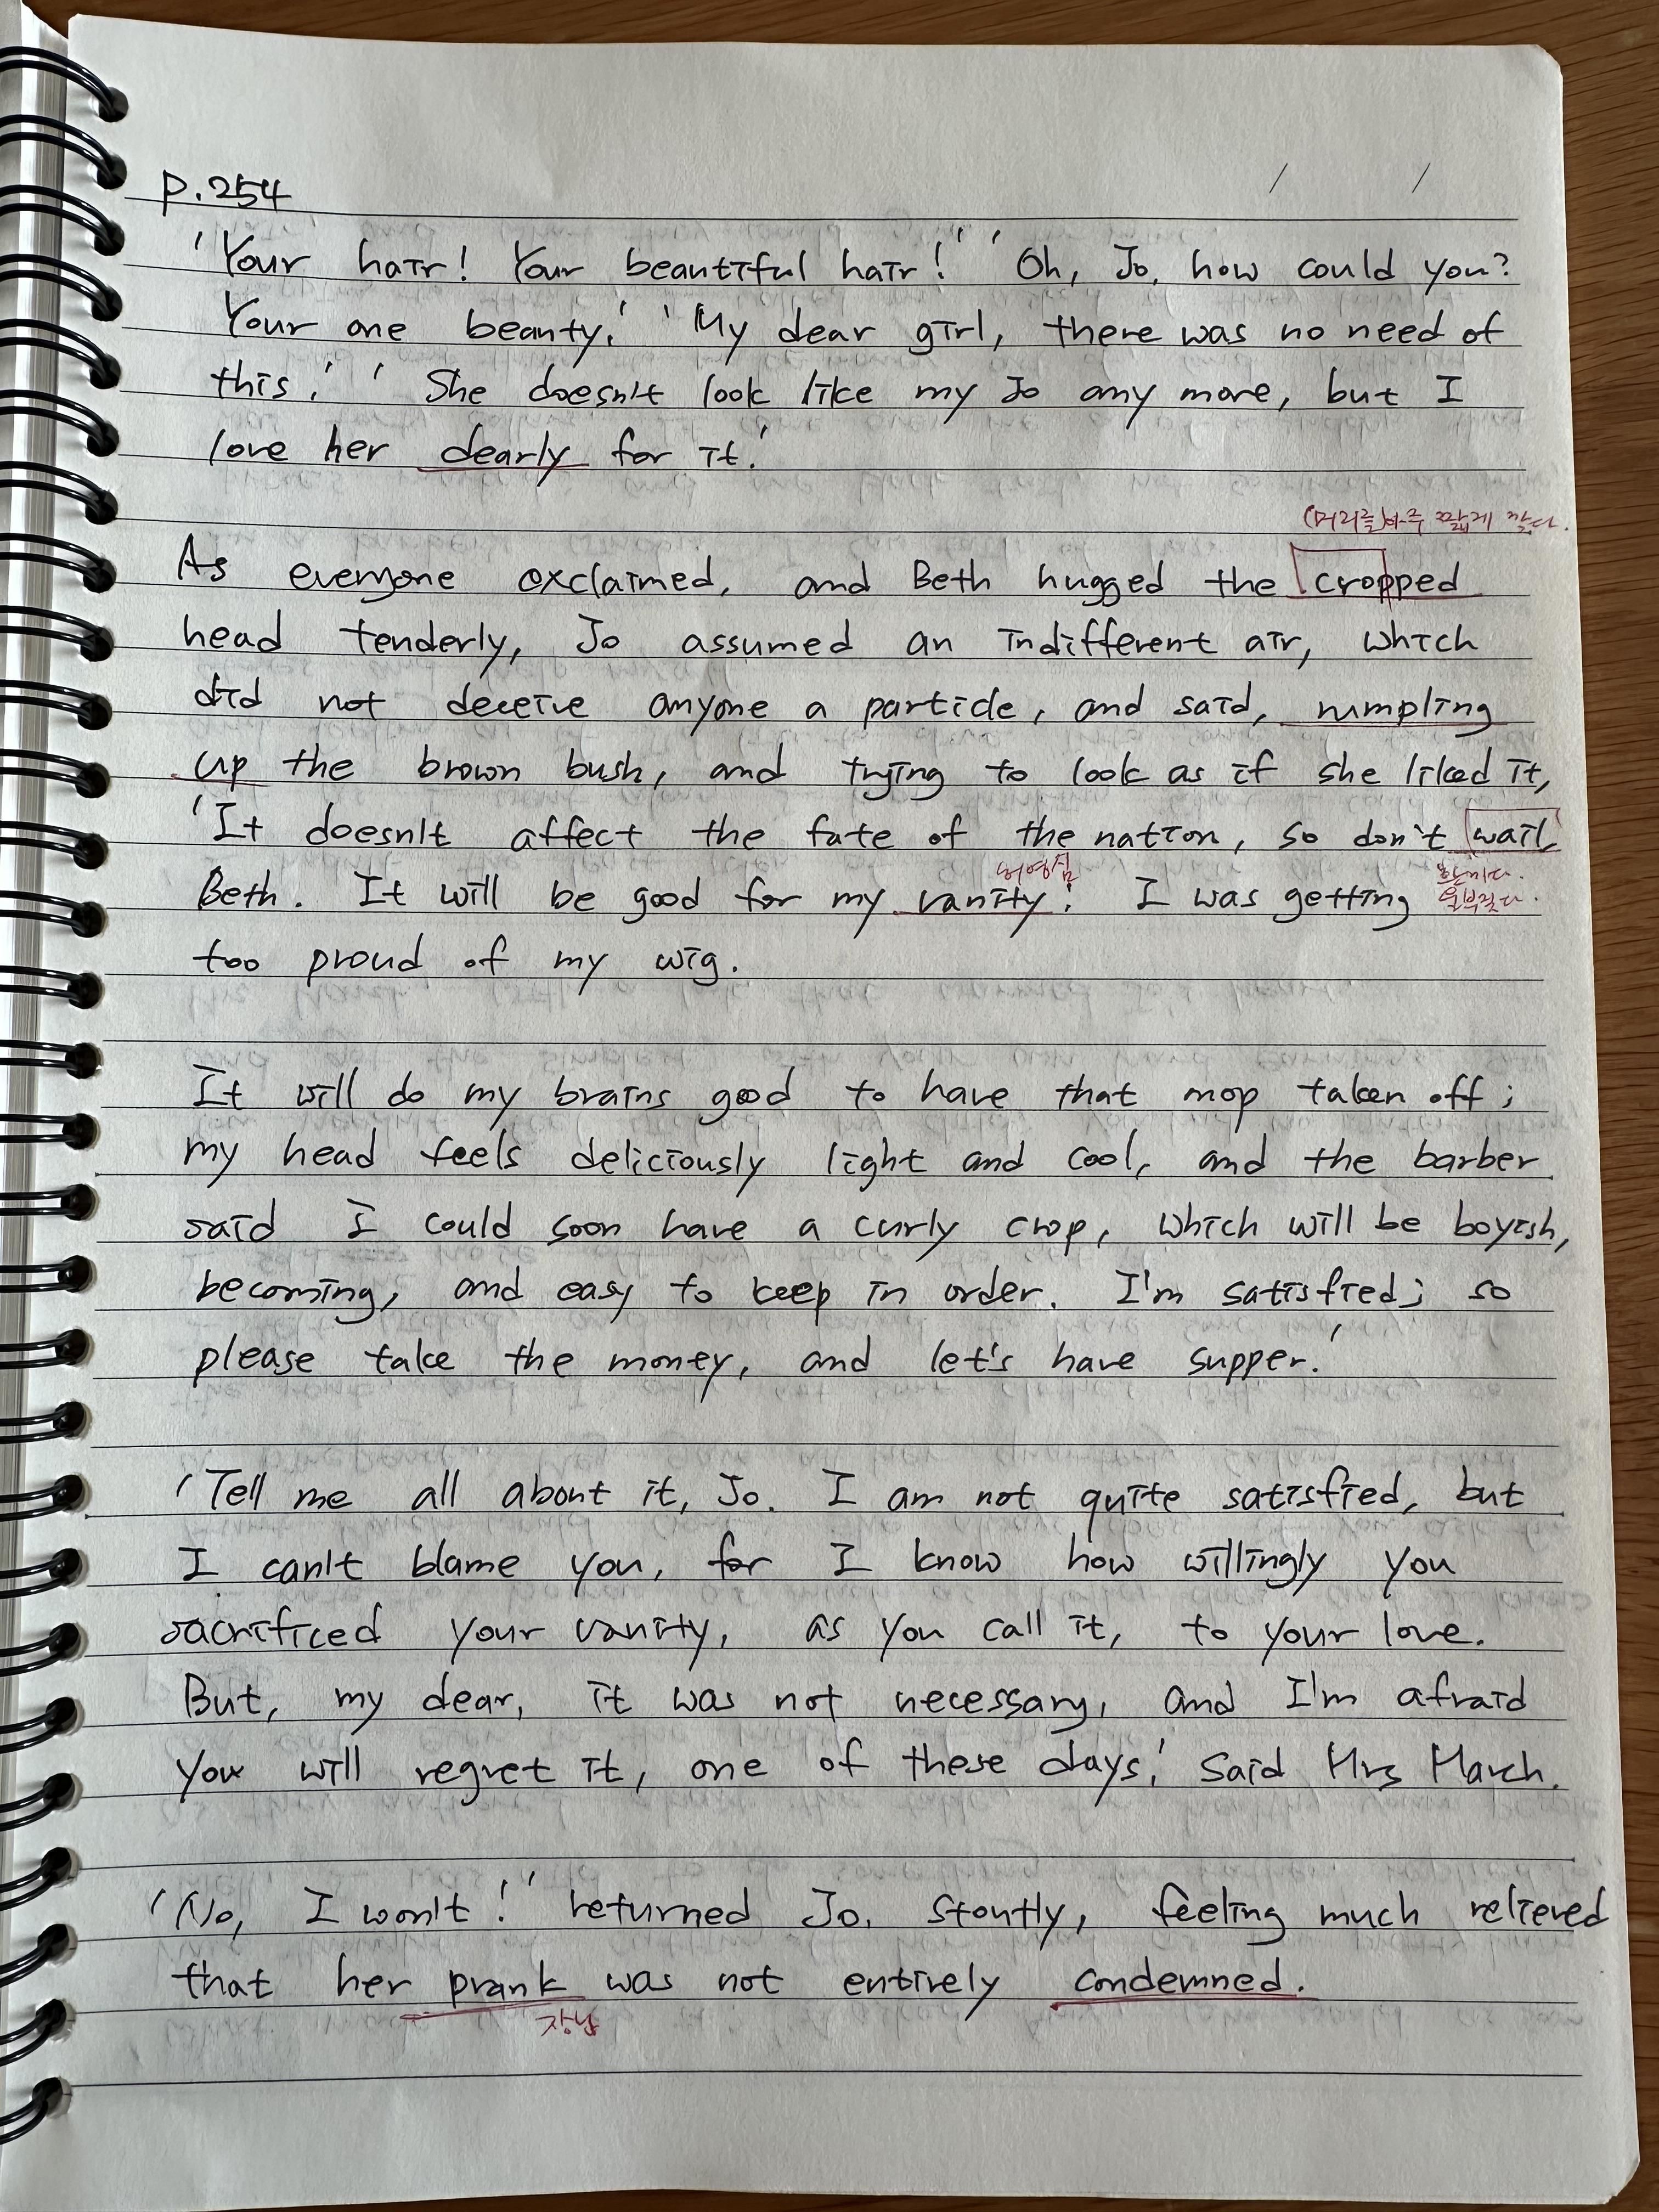 p.254
/ /
'Your hair! Your beautiful hair!' 'Oh, Jo, how could you?
Your one beauty.' 'My dear girl, there was no need of
this.' 'She doesn't look like my Jo any more, but I
love her dearly for it.'
(머리를)아주 짧게 깎다.
As everyone exclaimed, and Beth hugged the cropped
head tenderly, Jo assumed an indifferent air, which
did not deceive anyone a particle, and said, rumpling
up the brown bush, and trying to look as if she liked it,
'It doesn't affect the fate of the nation, so don't wail,
허영심
Beth. It will be good for my vanity; I was getting
울부짖다.
too proud of my wig.
It will do my brains good to have that mop taken off;
my head feels deliciously light and cool, and the barber
said I could soon have a curly crop, which will be boyish,
becoming, and easy to keep in order. I'm satisfied; so
please take the money, and let's have supper.'
'Tell me all about it, Jo. I am not quite satisfied, but
I can't blame you, for I know how willingly you
sacrificed your vanity, as you call it, to your love.
But, my dear, it was not necessary, and I'm afraid
you will regret it, one of these days,' said Mrs March.
'No, I won't!' returned Jo, stoutly, feeling much relieved
that her prank was not entirely condemned.
장난